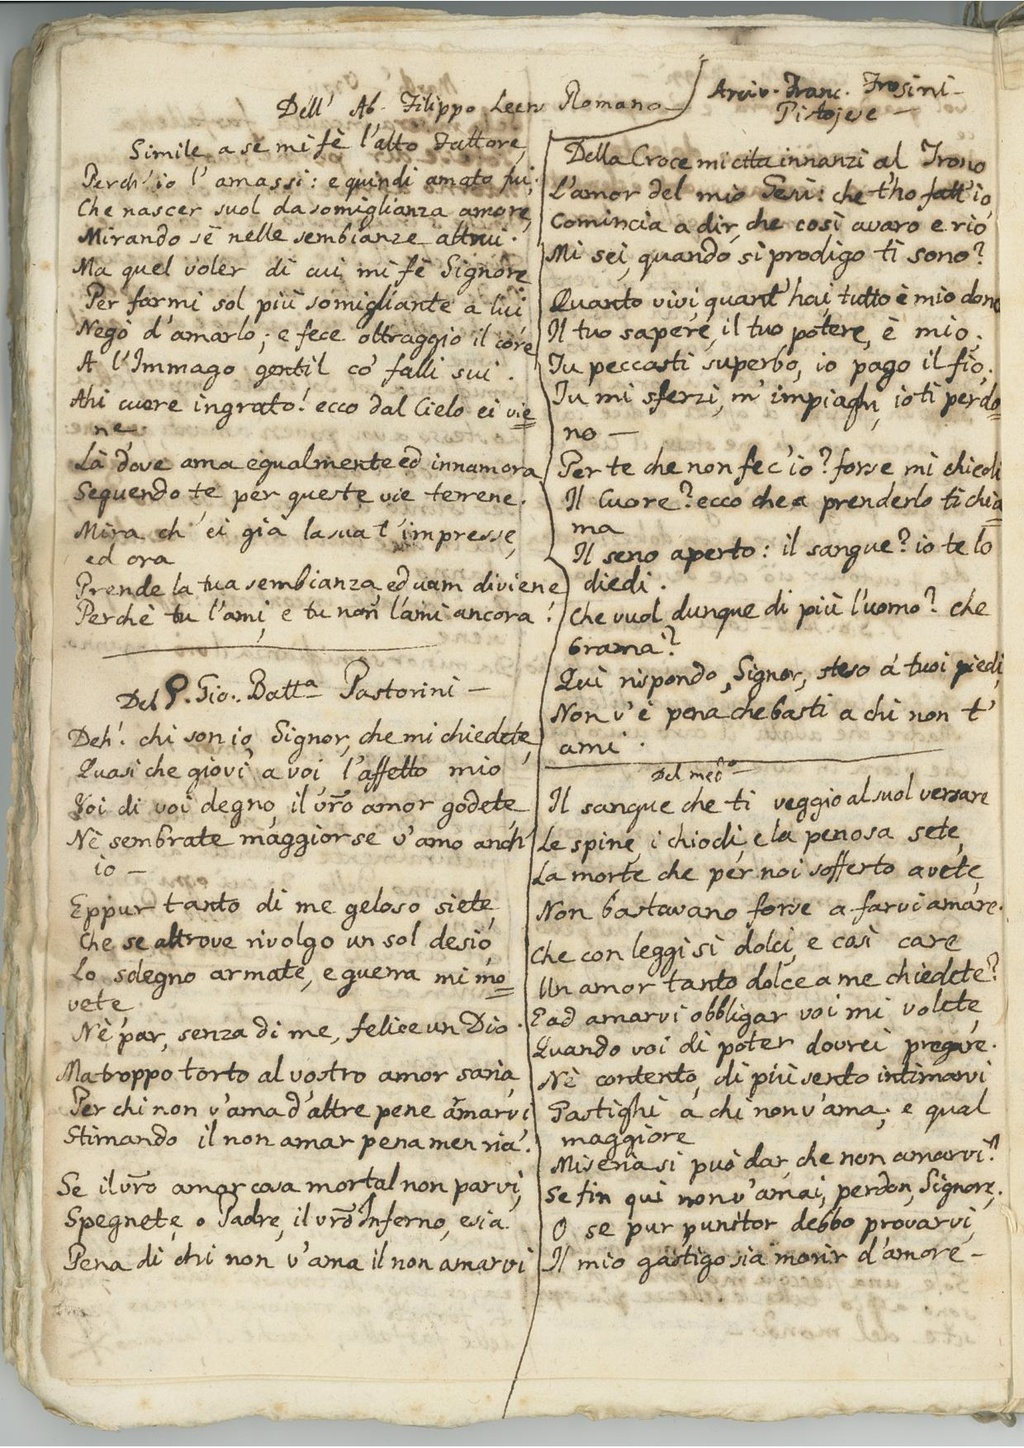 Dell' Ab. Filippo Leers Romano
Simile a sè mi fè l'alto Fattore,
Perch' io l' amassi: e quindi amato fui:
Che nascer suol da somiglianza amore,
Mirando sè nelle sembianze altrui.
Ma quel voler di cui mi fè Signore
Per farmi sol più somigliante a lui
Negò d'amarlo; e fece oltraggio il core
A l'Immago gentil co' falli sui.
Ahi cuore ingrato! ecco dal Cielo ei vie=
ne.
Là dove ama egualmente ed innamora
Seguendo te per queste vie terrene.
Mira ch' ei già la sua t' impresse,
ed ora
Prende la tua sembianza, ed uom diviene
Perchè tu l'ami, e tu non l'ami ancora!
Del P. Gio. Batta Pastorini —
Deh! chi son io, Signor, che mi chiedete,
Quasi che giovi a voi l'affetto mio
Voi di voi degno il vro amor godete,
Nè sembrate maggior se v'amo anch'
io —
Eppur tanto di me geloso siete,
Che se altrove rivolgo un sol desio,
Lo sdegno armate, e guerra mi mo=
vete,
Nè par, senza di me, felice un Dio.
Ma troppo torto al vostro amor saria,
Per chi non v'ama d'altre pene armarvi
Stimando il non amar pena men ria.
Se il vro amor cosa mortal non parvi,
Spegnete, o Padre, il vro Inferno, e sia
Pena di chi non v'ama il non amarvi
Arciv. Franc. Frosini —
Pistojese —
Della Croce mi cita innanzi al Trono
L'amor del mio Gesù: che t'ho fatt'io,
Comincia a dir, che così avaro e rio
Mi sei, quando sì prodigo ti sono?
Quanto vivi, quant' hai, tutto è mio dono
Il tuo sapere, il tuo potere, è mio,
Tu peccasti superbo, io pago il fio.
Tu mi sferzi, m' impiaghi, io ti perdo=
no —
Per te che non fec'io? forse mi chiedi
Il Cuore? ecco che a prenderlo ti chia=
ma
Il seno aperto: il sangue? io te lo
diedi.
Che vuol dunque di più l'uomo? che
brama?
Qui rispondo, Signor, steso a' tuoi piedi,
Non v'è pena che basti a chi non t'
ami.
Del medo —
Il sangue che ti veggio al suol versare
Le spine, i chiodi, e la penosa sete,
La morte che per noi sofferto avete,
Non bastavano forse a farvi amare.
Che con leggi sì dolci, e così care
Un amor tanto dolce a me chiedete?
E ad amarvi obbligar voi mi volete,
Quando voi di poter dovrei pregare.
Nè contento, di più sento intimarvi
Gastighi a chi non v'ama; e qual
maggiore
Miseria si può dar, che non amarvi?
Se fin qui non v'amai, perdon, Signore,
O se pur punitor debbo provarvi,
Il mio gastigo sia morir d'amore —